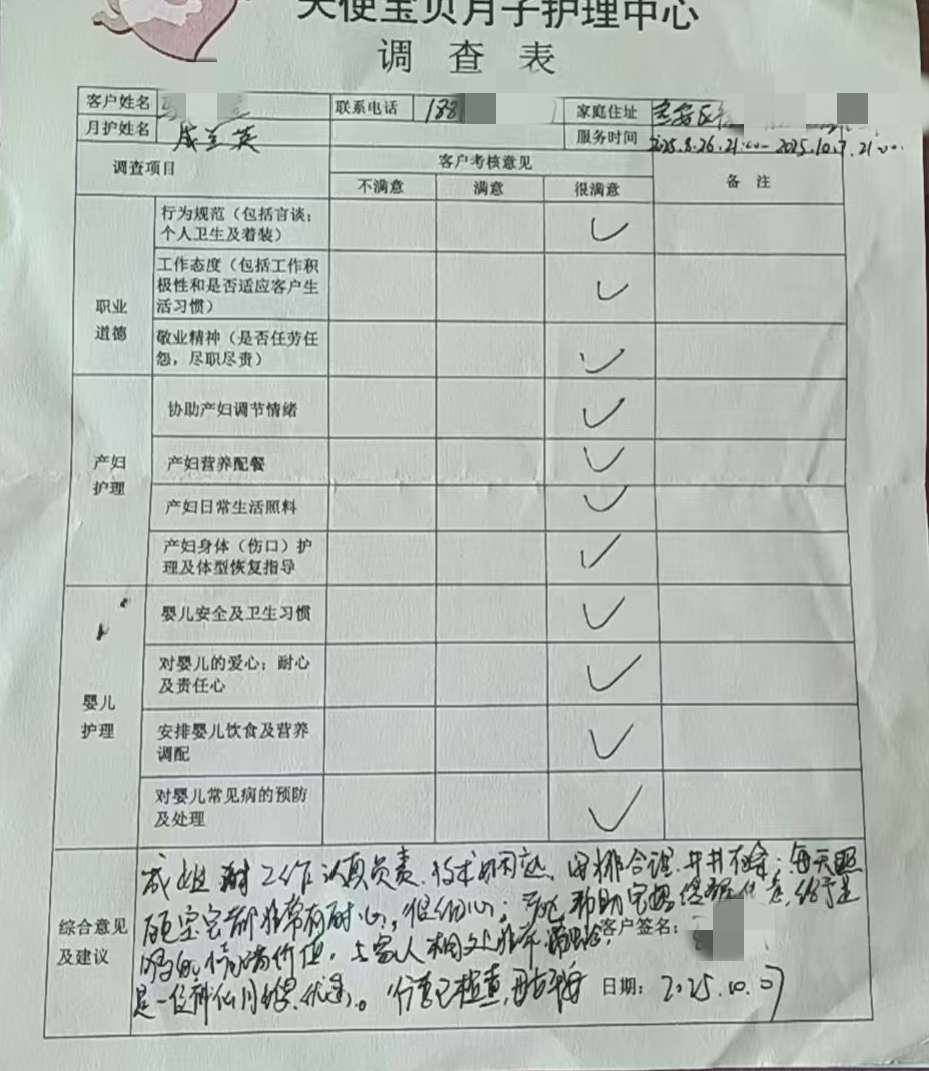 天使宝贝月子护理中心
调查表
客户姓名 联系电话 188 家庭住址 宝安区
月护姓名 成兰英 服务时间 2025.8.26.21:00-2025.10.7.21:00.
调查项目 客户考核意见 备注
不满意 满意 很满意
职业道德
行为规范（包括言谈；
个人卫生及着装）
工作态度（包括工作积
极性和是否适应客户生
活习惯）
敬业精神（是否任劳任
怨，尽职尽责）
产妇护理
协助产妇调节情绪
产妇营养配餐
产妇日常生活照料
产妇身体（伤口）护
理及体型恢复指导
婴儿护理
婴儿安全及卫生习惯
对婴儿的爱心；耐心
及责任心
安排婴儿饮食及营养
调配
对婴儿常见病的预防
及处理
综合意见及建议
成姐 工作认真负责，技术娴熟，安排合理，井井有条；每天照
顾宝宝都非常有耐心，很细心； 帮助宝妈 给予足
够的情绪价值，与家人相处
是一位神仙月嫂
客户签名：
日期：2025.10.07